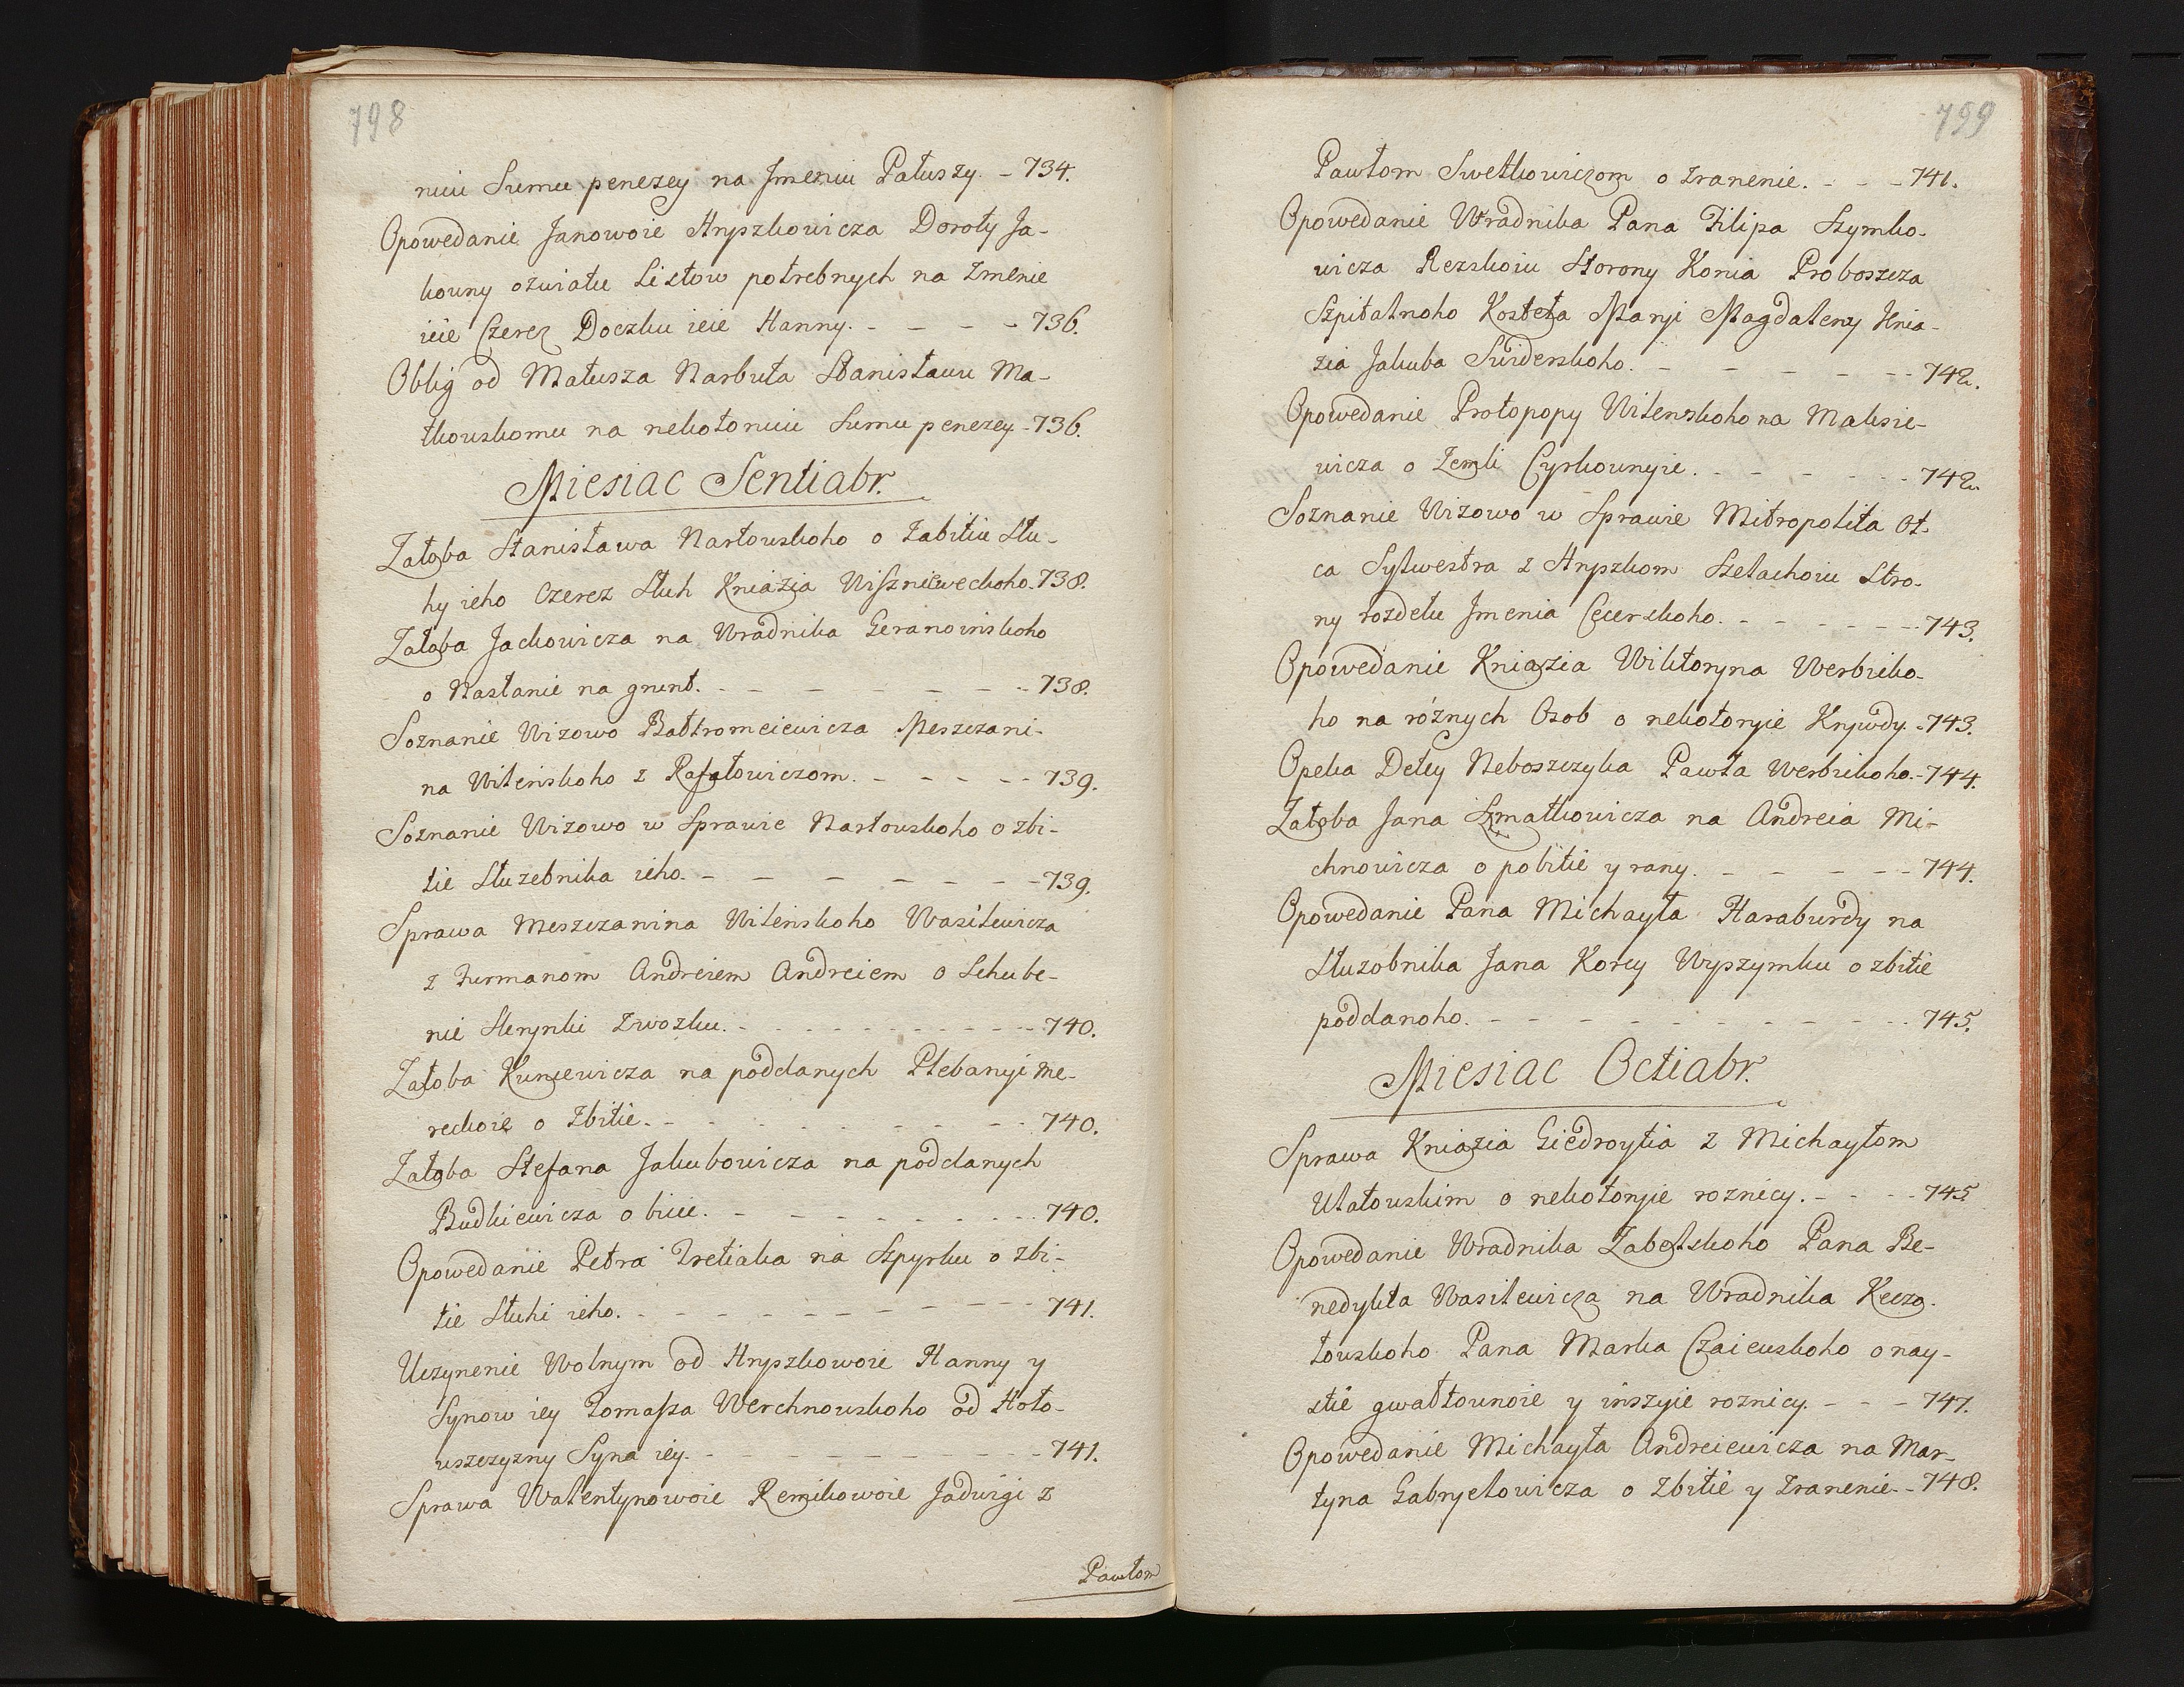 798
nuiu Sumu penezey na Jmeniu Patuszy. - 734.
Opowedanie Janowoie Hryszkowicza Doroty Ja-
kowny ozwiatu Listow potrebnych na Imenie
ieie Czerez Doczku ieie Hanny. - - - - 736.
Oblig od Matusza Narbuta Stanisławu Ma-
łkowskomu na nekotoruiu Sumu penezey - 736.
Miesiac Sentiabr.
Załoba Stanisława Narłowskoho o Zabitiu Słu-
hy ieho Czerez Słuh Kniazia Wisznieweckoho. 738.
Załoba Jackowicza na Wradnika Geranoinskoho
o Nasłanie na grunt. - - - - - - - 738.
Soznanie Wizowo Bałtromeiewicza Meszczani-
na Wilenskoho z Rafałowiczom. - - - - - 739.
Soznanie Wizowo w Sprawie Narłowskoho o zbi-
tie Słuzebnika ieho. - - - - - - - 739.
Sprawa Meszczanina Wilenskoho Wasilewicza
z Furmanom Andreiem Andreiem o Schube-
nie Skrynki Zwozku. - - - - - - - - 740.
Załoba Kuncewicza na poddanych Plebanyi Me-
reckoie o Zbitie. - - - - - - - - 740.
Załoba Stefana Jakubowicza na poddanych
Budkiewicza o biie. - - - - - - - 740.
Opowedanie Petra Tretiaka na Szpyrku o zbi-
tie Słuhi ieho. - - - - - - - - - 741.
Uczynenie Wolnym od Hryszkowoie Hanny y
Synow iey Tomasza Werchnowskoho od Hoło-
wszczyzny Syna iey. - - - - - - - 741.
Sprawa Walentynowoie Remikowoie Jadwigi z
Pawłom
799
Pawłom Swetkowiczom o Zranenie. - - - 741.
Opowedanie Wradnika Pana Filipa Szymko-
wicza Rezskoiu Storony Konia Proboszcza
Szpitalnoho Kosteła Maryi Magdaleny Knia-
zia Jakuba Swiderskoho. - - - - - - 742.
Opowedanie Protopopy Wilenskoho na Maksie-
wicza o Zemli Cyrkownyie. - - - - - - 742.
Soznanie Wizowo w Sprawie Mitropolita Ot-
ca Sylwestra z Hryszkom Szelachoiu Stro-
ny rozdelu Jmenia Cecerskoho. - - - - - - 743.
Opowedanie Kniazia Wiktoryna Werbicko-
ho na róznych Osob o nekotoryie Krywdy. - 743.
Opeka Detey Neboszczyka Pawła Werbickoho. - 744.
Załoba Jana Szmatkowicza na Andreia Mi-
chnowicza o pobitie y rany. - - - - - 744.
Opowedanie Pana Michayła Haraburdy na
Słuzobnika Jana Korey Wyszymku o zbitie
poddanoho. - - - - - - - - - - 745.
Miesiac Octiabr.
Sprawa Kniazia Giedroytia z Michayłom
Ułatowskim o nekotoryie roznicy. - - - - 745
Opowedanie Wradnika Zabelskoho Pana Be-
nedykta Wasilewicza na Wradnika Keczo-
łowskoho Pana Marka Czaiewskoho o nay-
stie gwałtownoie y inszyie roznicy. - - - 747.
Opowedanie Michayła Andreiewicza na Mar-
tyna Gabryelowicza o Zbitie y Zranenie - - 748.